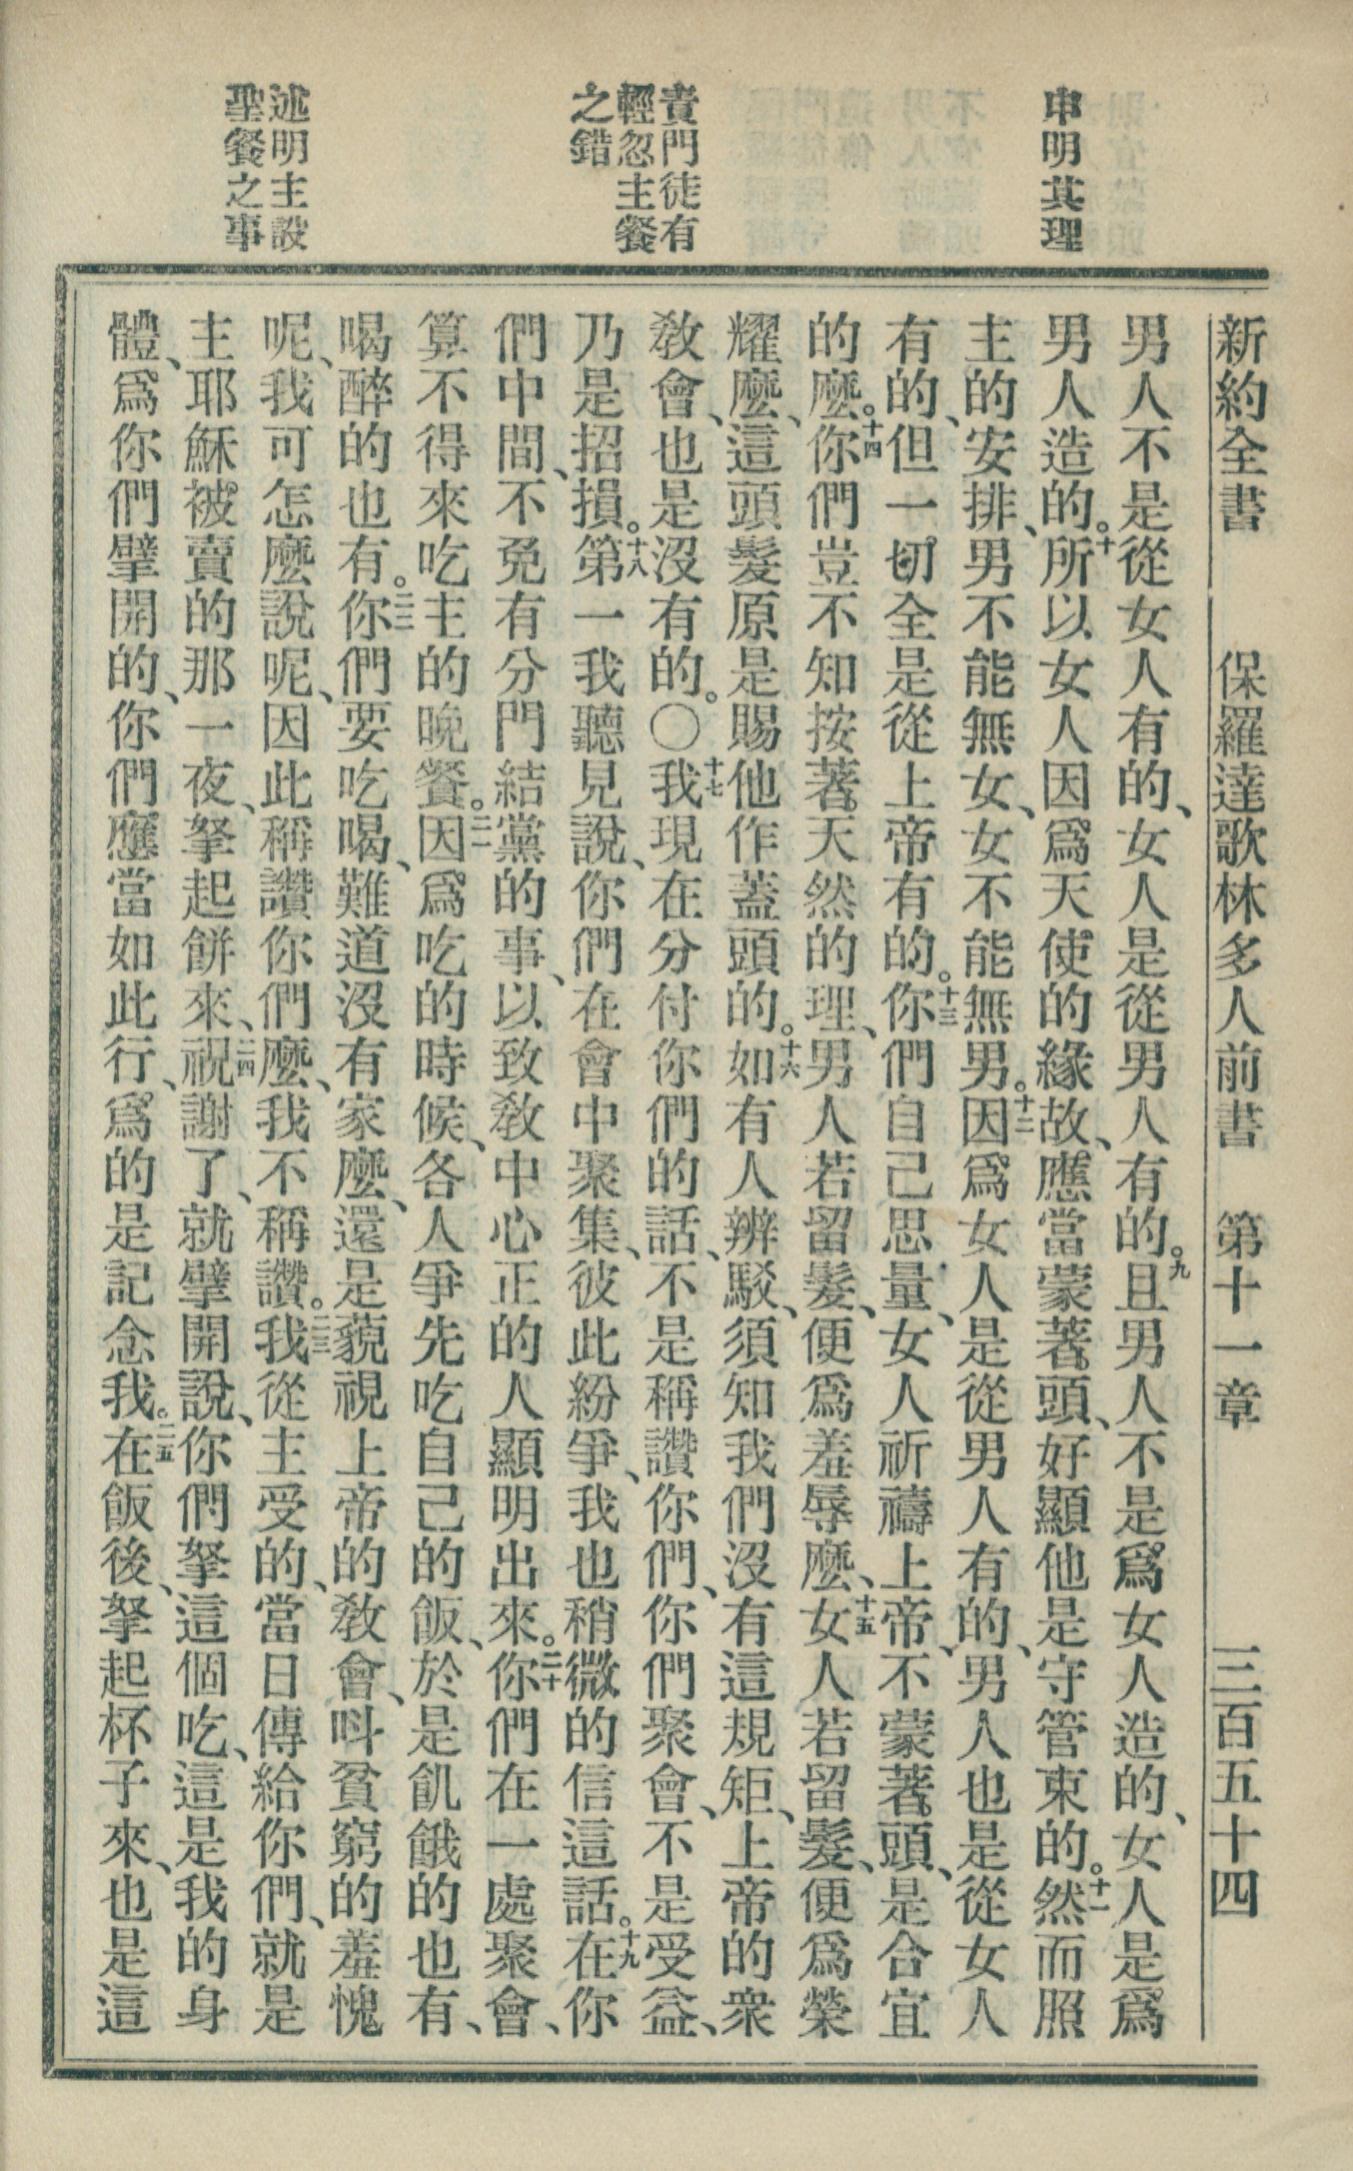 申明其理
責門徒有
輕忽主餐
之錯
述明主設
聖餐之事
新約全書 保羅達歌林多人前書 第十一章 三百五十四
男人不是從女人有的、女人是從男人有的。九且男人不是爲女人造的、女人是爲
男人造的。十所以女人因爲天使的緣故、應當蒙著頭、好顯他是守管束的。十一然而照
主的安排、男不能無女、女不能無男。十二因爲女人是從男人有的、男人也是從女人
有的、但一切全是從上帝有的。十三你們自己思量、女人祈禱上帝、不蒙著頭、是合宜
的麼。十四你們豈不知按著天然的理、男人若留髮、便爲羞辱麼、十五女人若留髮、便爲榮
耀麼、這頭髮原是賜他作蓋頭的。十六如有人辨駁、須知我們沒有這規矩、上帝的衆
敎會、也是沒有的。〇十七我現在分付你們的話、不是稱讚你們、你們聚會、不是受益、
乃是招損。十八第一我聽見說、你們在會中聚集、彼此紛爭、我也稍微的信這話。十九在你
們中間、不免有分門結黨的事、以致敎中心正的人顯明出來。二十你們在一處聚會、
算不得來吃主的晚餐。二一因爲吃的時候、各人爭先吃自己的飯、於是飢餓的也有、
喝醉的也有。二二你們要吃喝、難道沒有家麼、還是藐視上帝的敎會、呌貧窮的羞愧
呢、我可怎麼說呢、因此稱讚你們麼、我不稱讚。二三我從主受的、當日傳給你們、就是
主耶穌被賣的那一夜、拏起餅來、二四祝謝了、就擘開說、你們拏這個吃、這是我的身
體、爲你們擘開的、你們應當如此行、爲的是記念我。二五在飯後、拏起杯子來、也是這